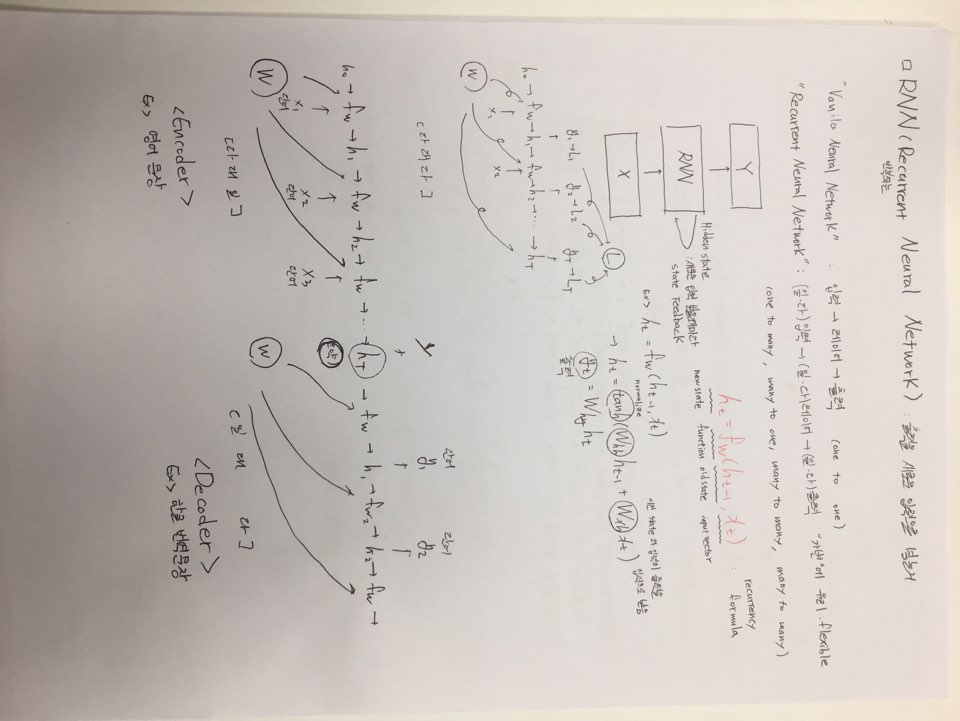 □ RNN (Recurrent Neural Network) : 출력을 새로운 입력으로 넣는거
반복되는
"Vanila Neural Network" : 입력 → 레이어 → 출력 (one to one)
"Recurrent Neural Network" : (일·다)입력 → (일·다)레이어 → (일·다)출력 "가변"에 유리. flexible
(one to many, many to one, many to many, many to many)
Y
RNN
X
Hidden state
: 새로운 입력 넣을때마다
state Feedback
ht = fw(ht-1, xt) : recurrency formula
new state function old state input vector
Ex> ht = fw(ht-1, xt)
normalize
→ ht = tanh(Whh ht-1 + Wxh xt)
이전 state 와 입력의 출력을
입력으로 받음
yt = Why ht
출력
L
y1→L1 y2→L2 yT→LT
h0 → fw → h1 → fw → h2 → ... → hT
x1 x2
W
[다 대 다]
Y
단어 단어
y1 y2
h0 → fw → h1 → fw → h2 → fw → ... → hT → fw → h1 → fw2 → h2 → fw →
요약
x1 x2 x3
단어 단어 단어
W W
[다 대 일] [일 대 다]
<Encoder> <Decoder>
Ex> 영어 문장 Ex> 한글 번역문장